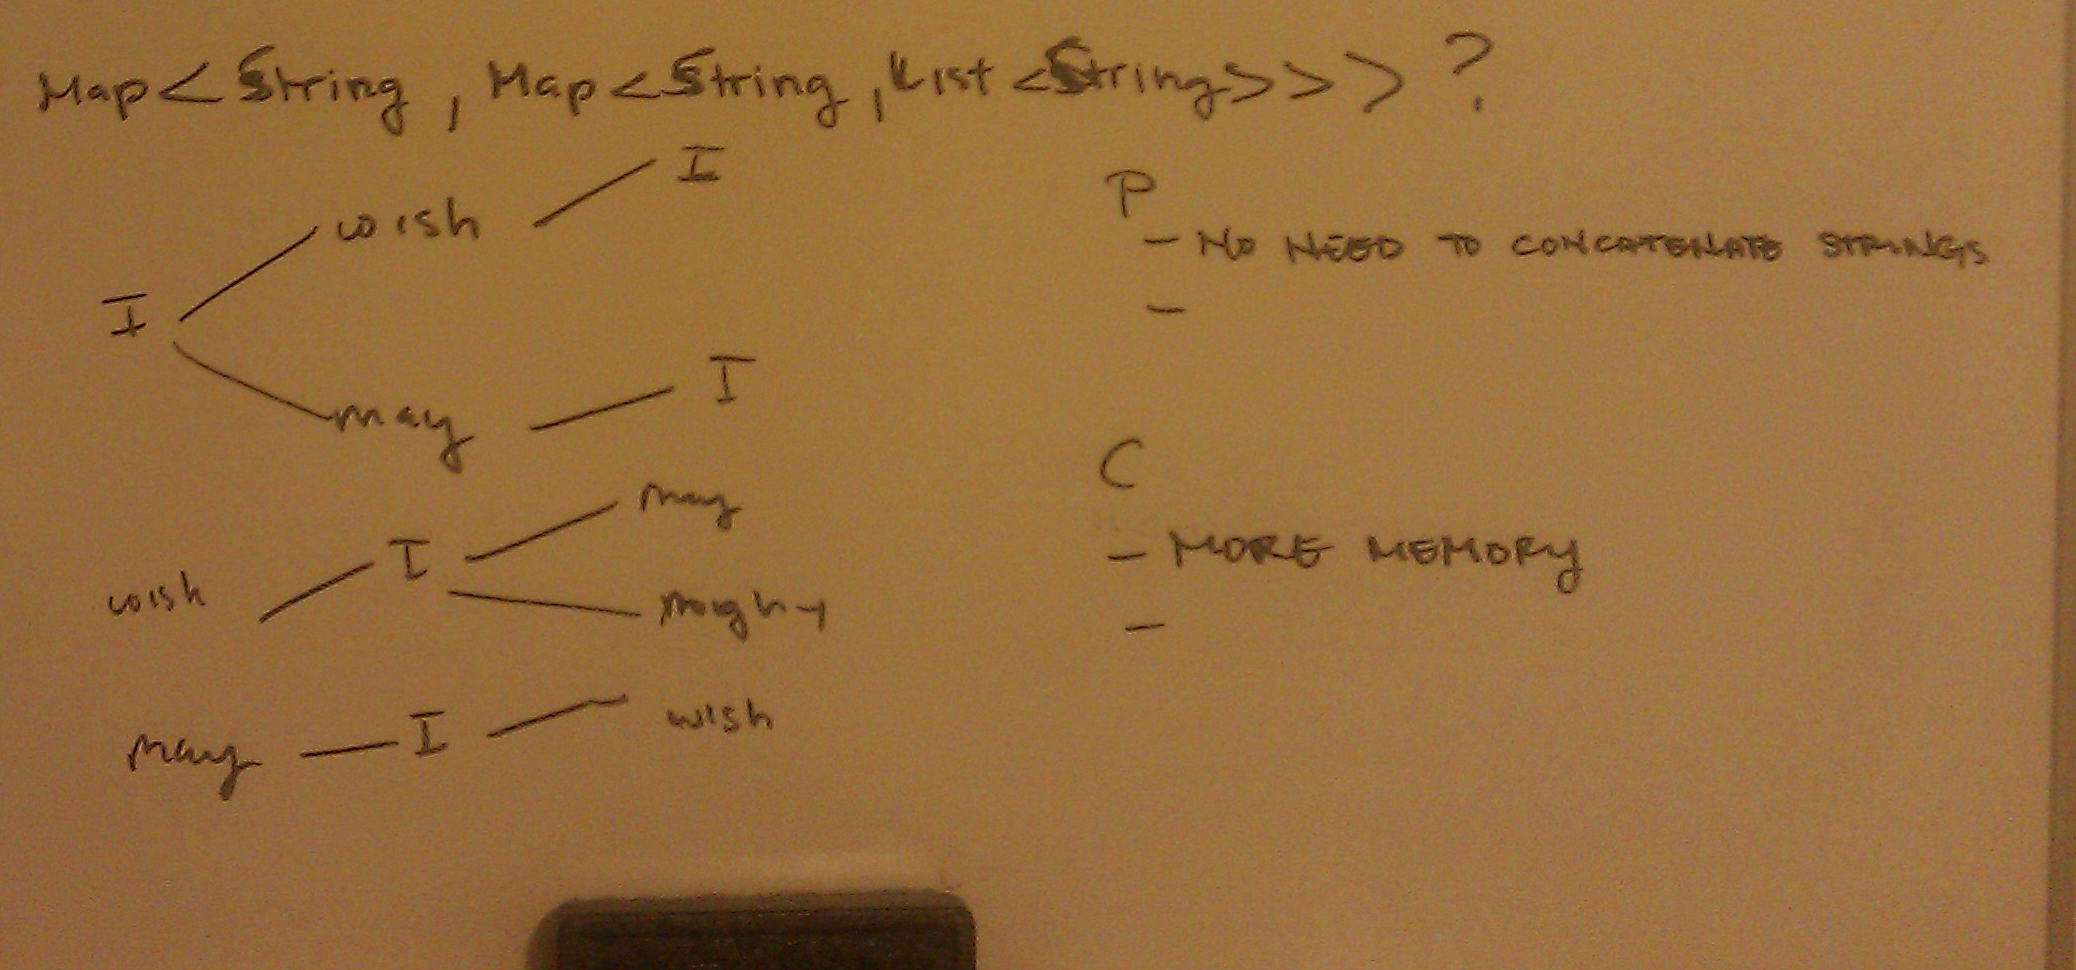 Map<String, Map<String, List<String>>>?
I
wish
I
may
I
wish
I
may
might
may
I
wish
P
- NO NEED TO CONCATENATE STRINGS
-
C
- MORE MEMORY
-